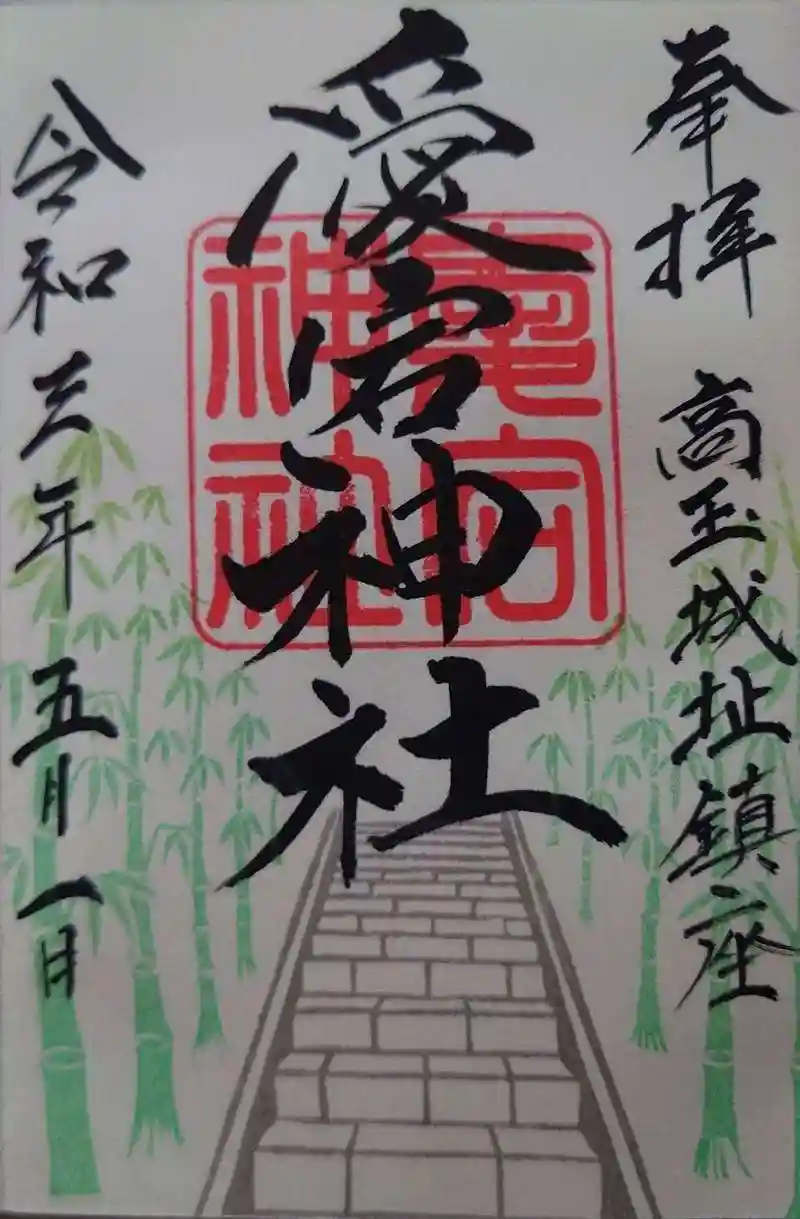 奉拝
高玉城址鎮座
愛宕神社
令和三年五月一日
神社